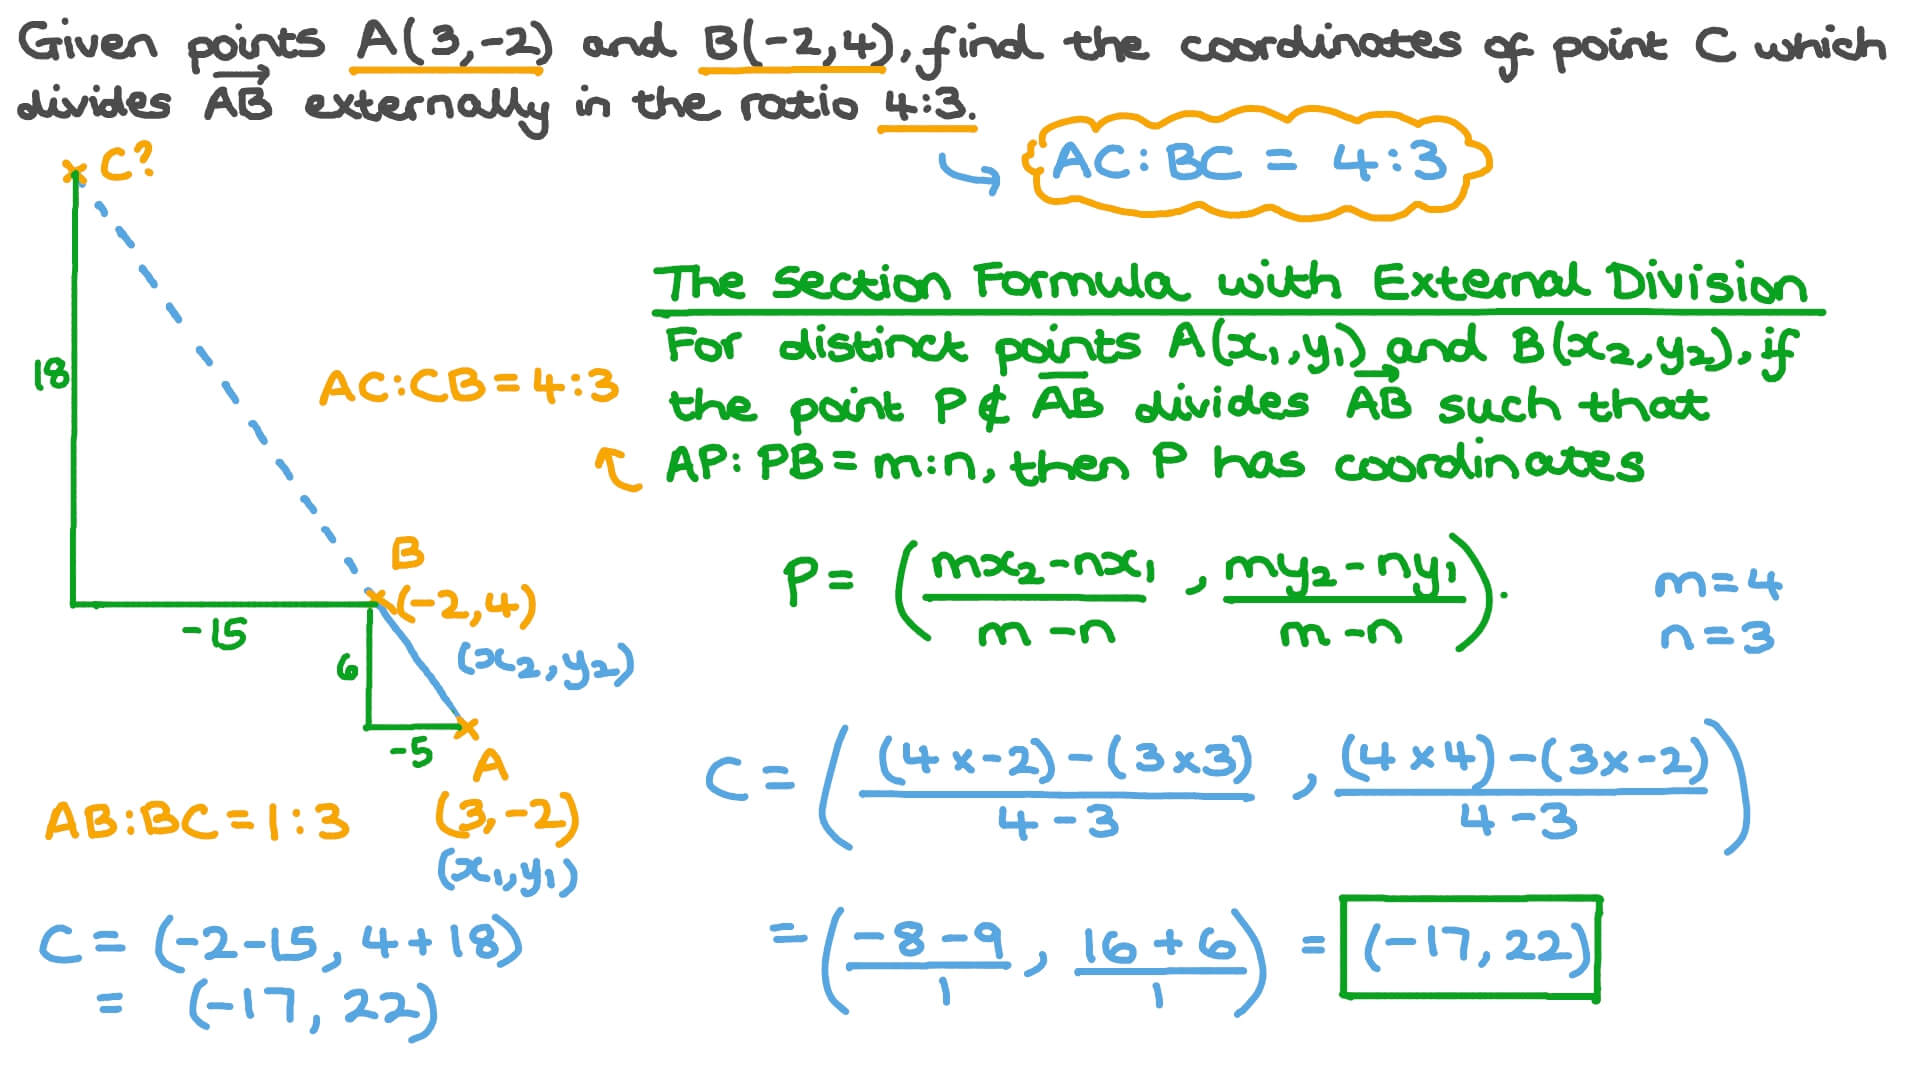 Given points A(3,-2) and B(-2,4), find the coordinates of point C which
divides AB externally in the ratio 4:3.
AC:BC = 4:3
C?
18
AC:CB=4:3
-15
B
(-2,4)
(x₂,y₂)
6
-5
A
(3,-2)
(x₁,y₁)
AB:BC=1:3
C = (-2-15, 4+18)
= (-17, 22)
The Section Formula with External Division
For distinct points A(x₁,y₁) and B(x₂,y₂), if
the point P∉ AB divides AB such that
AP:PB=m:n, then P has coordinates
P= ((mx₂-nx₁)/(m-n), (my₂-ny₁)/(m-n)).
m=4
n=3
C = (((4×-2)-(3×3))/(4-3), ((4×4)-(3×-2))/(4-3))
= ((-8-9)/1, (16+6)/1) = (-17,22)